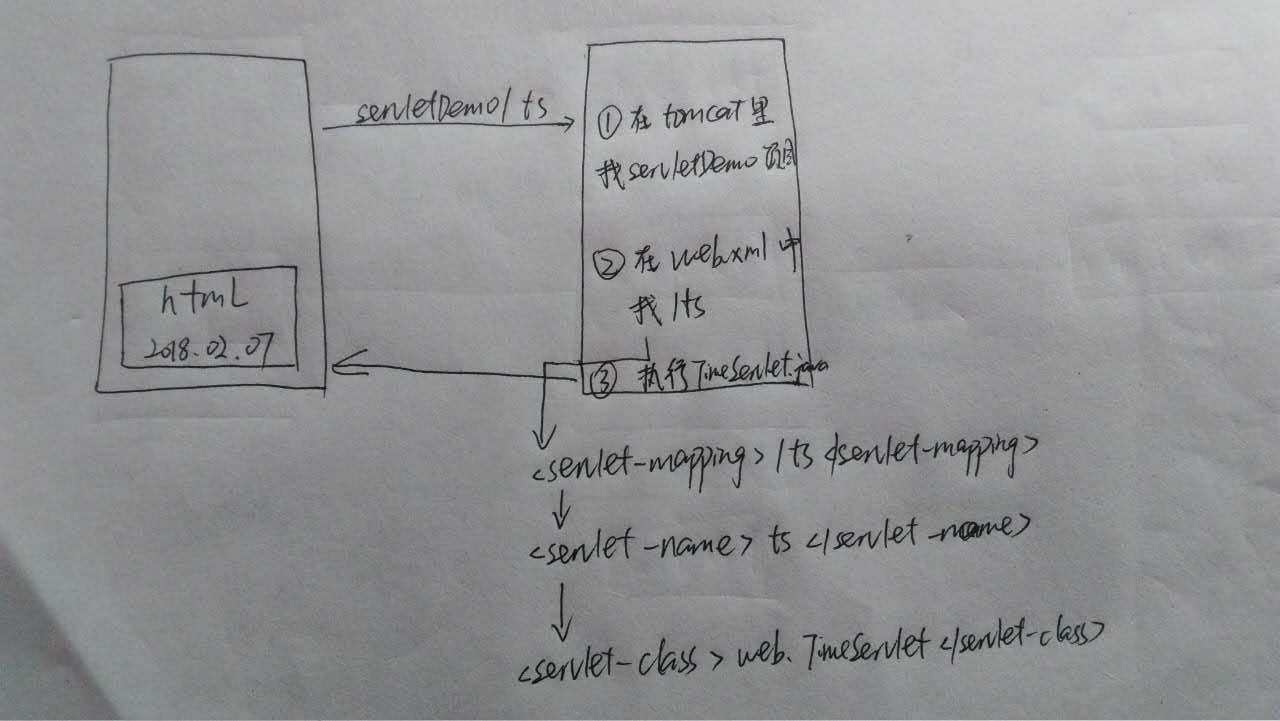 servletDemo/ts
① 在 tomcat 里
找 servletDemo 项目
② 在 web.xml 中
找 /ts
html
2018.02.07
③ 执行 TimeServlet.java
<servlet-mapping> /ts </servlet-mapping>
<servlet-name> ts </servlet-name>
<servlet-class> web.TimeServlet </servlet-class>